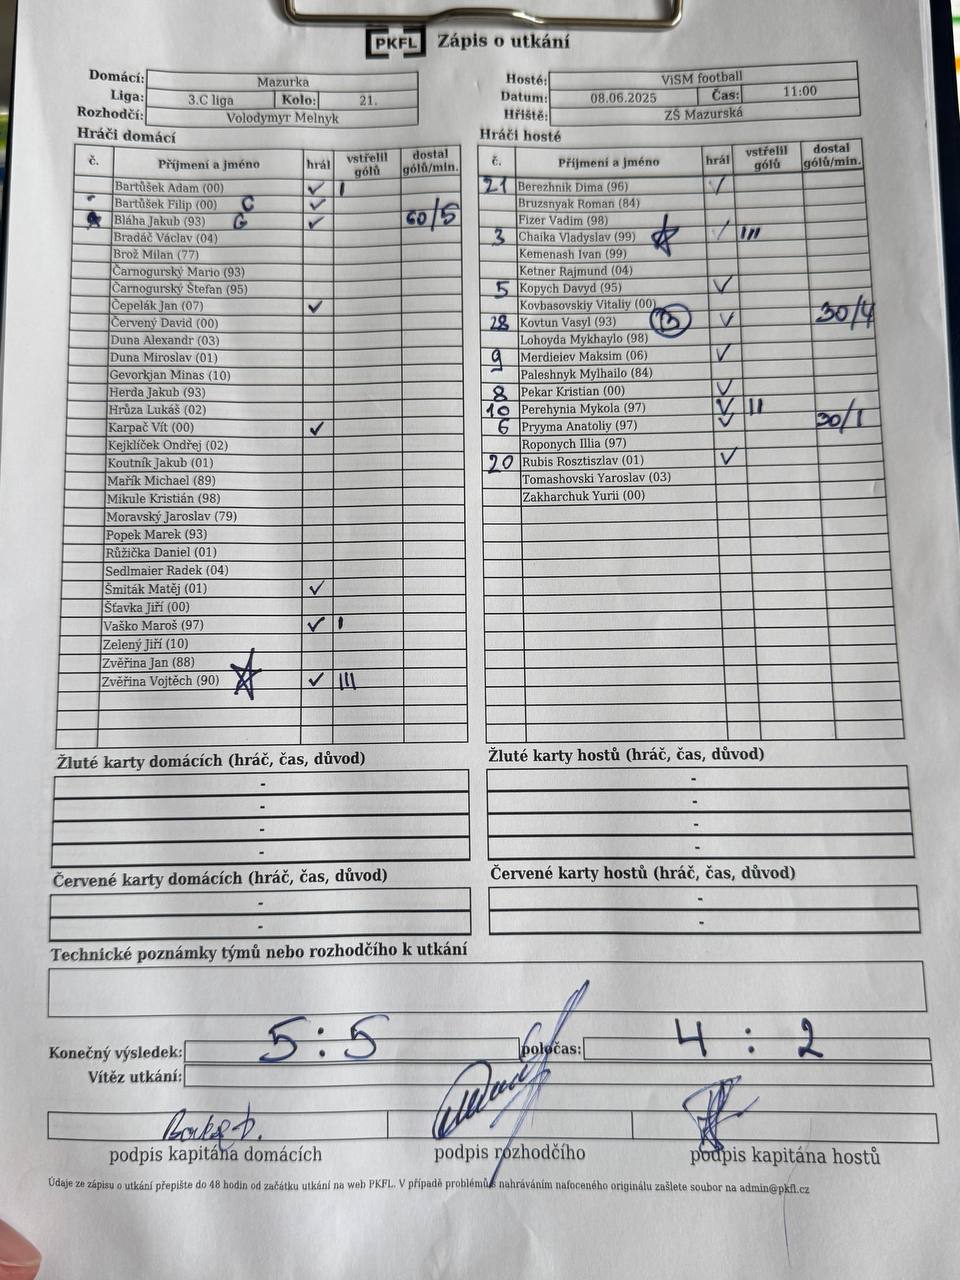 PKFL Zápis o utkání
Domácí: Mazurka
Liga: 3.C liga Kolo: 21.
Rozhodčí: Volodymyr Melnyk
Hosté: ViSM football
Datum: 08.06.2025 Čas: 11:00
Hřiště: ZŠ Mazurská
Hráči domácí
č. Příjmení a jméno hrál vstřelil gólů dostal gólů/min.
Bartůšek Adam (00) ✓ I
Bartůšek Filip (00) C ✓
Bláha Jakub (93) G ✓ 60/5
Bradáč Václav (04)
Brož Milan (77)
Čarnogurský Mario (93)
Čarnogurský Štefan (95)
Čepelák Jan (07) ✓
Červený David (00)
Duna Alexandr (03)
Duna Miroslav (01)
Gevorkjan Minas (10)
Herda Jakub (93)
Hrůza Lukáš (02)
Karpač Vít (00) ✓
Kejklíček Ondřej (02)
Koutník Jakub (01)
Mařík Michael (89)
Mikule Kristián (98)
Moravský Jaroslav (79)
Popek Marek (93)
Růžička Daniel (01)
Sedlmaier Radek (04)
Šmiták Matěj (01) ✓
Šťavka Jiří (00)
Vaško Maroš (97) ✓ I
Zelený Jiří (10)
Zvěřina Jan (88)
Zvěřina Vojtěch (90) ✓ III
Hráči hosté
č. Příjmení a jméno hrál vstřelil gólů dostal gólů/min.
21 Berezhnik Dima (96) ✓
Bruzsnyak Roman (84)
Fizer Vadim (98)
3 Chaika Vladyslav (99) ✓ III
Kemenash Ivan (99)
Ketner Rajmund (04)
5 Kopych Davyd (95) ✓
Kovbasovskiy Vitaliy (00)
28 Kovtun Vasyl (93) ✓ 30/4
Lohoyda Mykhaylo (98)
9 Merdieiev Maksim (06) ✓
Paleshnyk Mylhailo (84)
8 Pekar Kristian (00) ✓
10 Perehynia Mykola (97) ✓ II
6 Pryyma Anatoliy (97) ✓ 30/1
Roponych Illia (97)
20 Rubis Rosztiszlav (01) ✓
Tomashovski Yaroslav (03)
Zakharchuk Yurii (00)
Žluté karty domácích (hráč, čas, důvod)
-
-
-
-
Žluté karty hostů (hráč, čas, důvod)
-
-
-
-
Červené karty domácích (hráč, čas, důvod)
-
-
Červené karty hostů (hráč, čas, důvod)
-
-
Technické poznámky týmů nebo rozhodčího k utkání
Konečný výsledek: 5:5 poločas: 4 : 2
Vítěz utkání:
podpis kapitána domácích podpis rozhodčího podpis kapitána hostů
Údaje ze zápisu o utkání přepište do 48 hodin od začátku utkání na web PKFL. V případě problémů s nahráváním nafoceného originálu zašlete soubor na admin@pkfl.cz